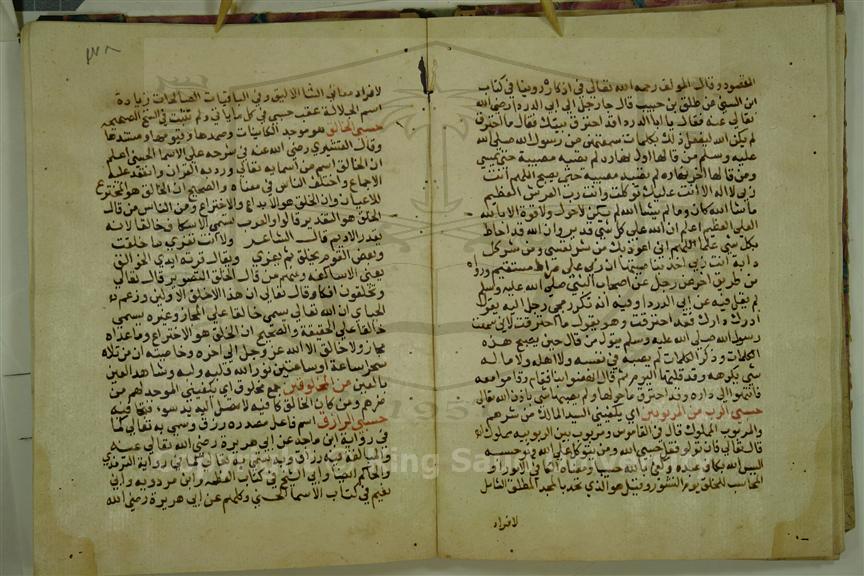 المقصود وقال المولف رحمه الله تعالى في اذكاره روينا في كتاب
ابن السني عن طلق بن حبيب قال جا رجل الى ابي الدرداء رضي الله
تعالى عنه فقال يا ابا الدرداء قد احترق بيتك فقال ما احترق
لم يكن الله ليفعل ذلك بكلمات سمعتهن من رسول الله صلى الله
عليه وسلم من قالها اول نهاره لم تصبه مصيبة حتى يمسي
ومن قالها اخر نهاره لم تصبه مصيبة حتى يصبح اللهم انت
ربي لا اله الا انت عليك توكلت وانت رب العرش العظيم
ما شا الله كان وما لم يشا الله لم يكن لا حول ولا قوة الا بالله
العلي العظيم اعلم ان الله على كل شي قدير وان الله قد احاط
بكل شي علما اللهم اني اعوذ بك من شر نفسي ومن شر كل
دابة انت ربي اخذ بناصيتها ان ربي على صراط مستقيم ورواه
من طريق اخر عن رجل من اصحاب النبي صلى الله عليه وسلم
لم يقل فيه عن ابي الدرداء وفيه انه تكرر مجي رجل اليه يقول
ادرك دارك فقد احترقت وهو يقول ما احترقت لاني سمعت
رسول الله صلى الله عليه وسلم يقول من قال حين يصبح هذه
الكلمات وذكر الكلمات لم يصبه في نفسه ولا اهله ولا ماله
شي يكرهه وقد قلتها اليوم ثم قال انهضوا بنا فقام وقاموا معه
فانتهوا الى داره وقد احترق ما حولها ولم يصبها شي باذن الله تعالى
حسبي الرب من المربوبين اي يكفيني السيد المالك من شرهم
والمربوب المملوك قال في القاموس ومربوب بين الربوبية مملوك
قال تعالى فان تولوا فقل حسبي الله ومن يتوكل على الله فهو حسبه
اليس الله بكاف عبده وكفى بالله حسيبا ومعناه
المحاسب للخلق يوم النشور وقيل هو الذي تحد بالمجد المطلق الشامل
لافراد
لافراد معاني الثنا الاليق وفي الباقيات الصالحات زيادة
اسم الجلالة عقب حسبي في كل ما ياتي ولم تثبت في النسخ الصحيحه
حسبي الخالق هو موجد الكائنات وممدها وقيومها ومسندها
وقال القشيري رضي الله عنه في شرحه على الاسما الحسنى اعلم
ان الخالق اسم من اسمايه تعالى ورد به القران وانعقد عليه
الاجماع واختلف الناس في معناه والصحيح ان الخالق هو المخترع
للاعيان وان الخلق هو الابداع والاختراع ومن الناس من قال
الخلق هو التقدير قالوا والعرب تسمي الاسكاف خالقا لانه
يقدر الاديم قال الشاعر ولا انت تفري ما خلقت
وبعض القوم يخلق ثم لا يفري
يعني الاساكفه ومنهم من قال الخلق التصوير قال تعالى
وتخلقون افكا وقال تعالى ان هذا الا خلق الاولين وزعم
الجباي ان الله تعالى يسمى خالقا على المجاز وغيره يسمى
خالقا على الحقيقة والصحيح ان الخلق هو الاختراع وما عداه
مجاز ولا خالق الا الله عز وجل الى اخره وخاصيته ان من تلاه
سحر ساعة او ساعتين نور الله قلبه
بالعين من المخلوقين جمع مخلوق اي يكفيني الموجد لهم من
شرهم ومن كان الخالق كافيه لا يصل اليه
حسبي الرازق اسم فاعل مصدره رزق وسمي به تعالى كما
في رواية ابن ماجه عن ابي هريرة رضي الله تعالى عنه
والمبالغة فيه رزاق وسمي به تعالى كما في رواية الترمذي
والحاكم ايضا وابي الشيخ في كتاب العظمه وابن مردويه وابي
نعيم في كتاب الاسما الحسنى وكلهم عن ابي هريرة رضي الله